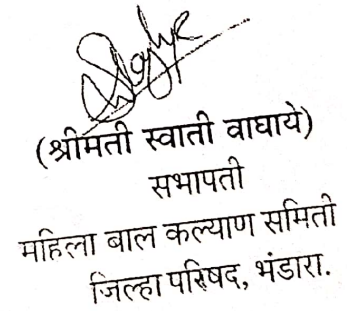 (श्रीमती स्वाती वाघाये)
सभापती
महिला बाल कल्याण समिती
जिल्हा परिषद, भंडारा.